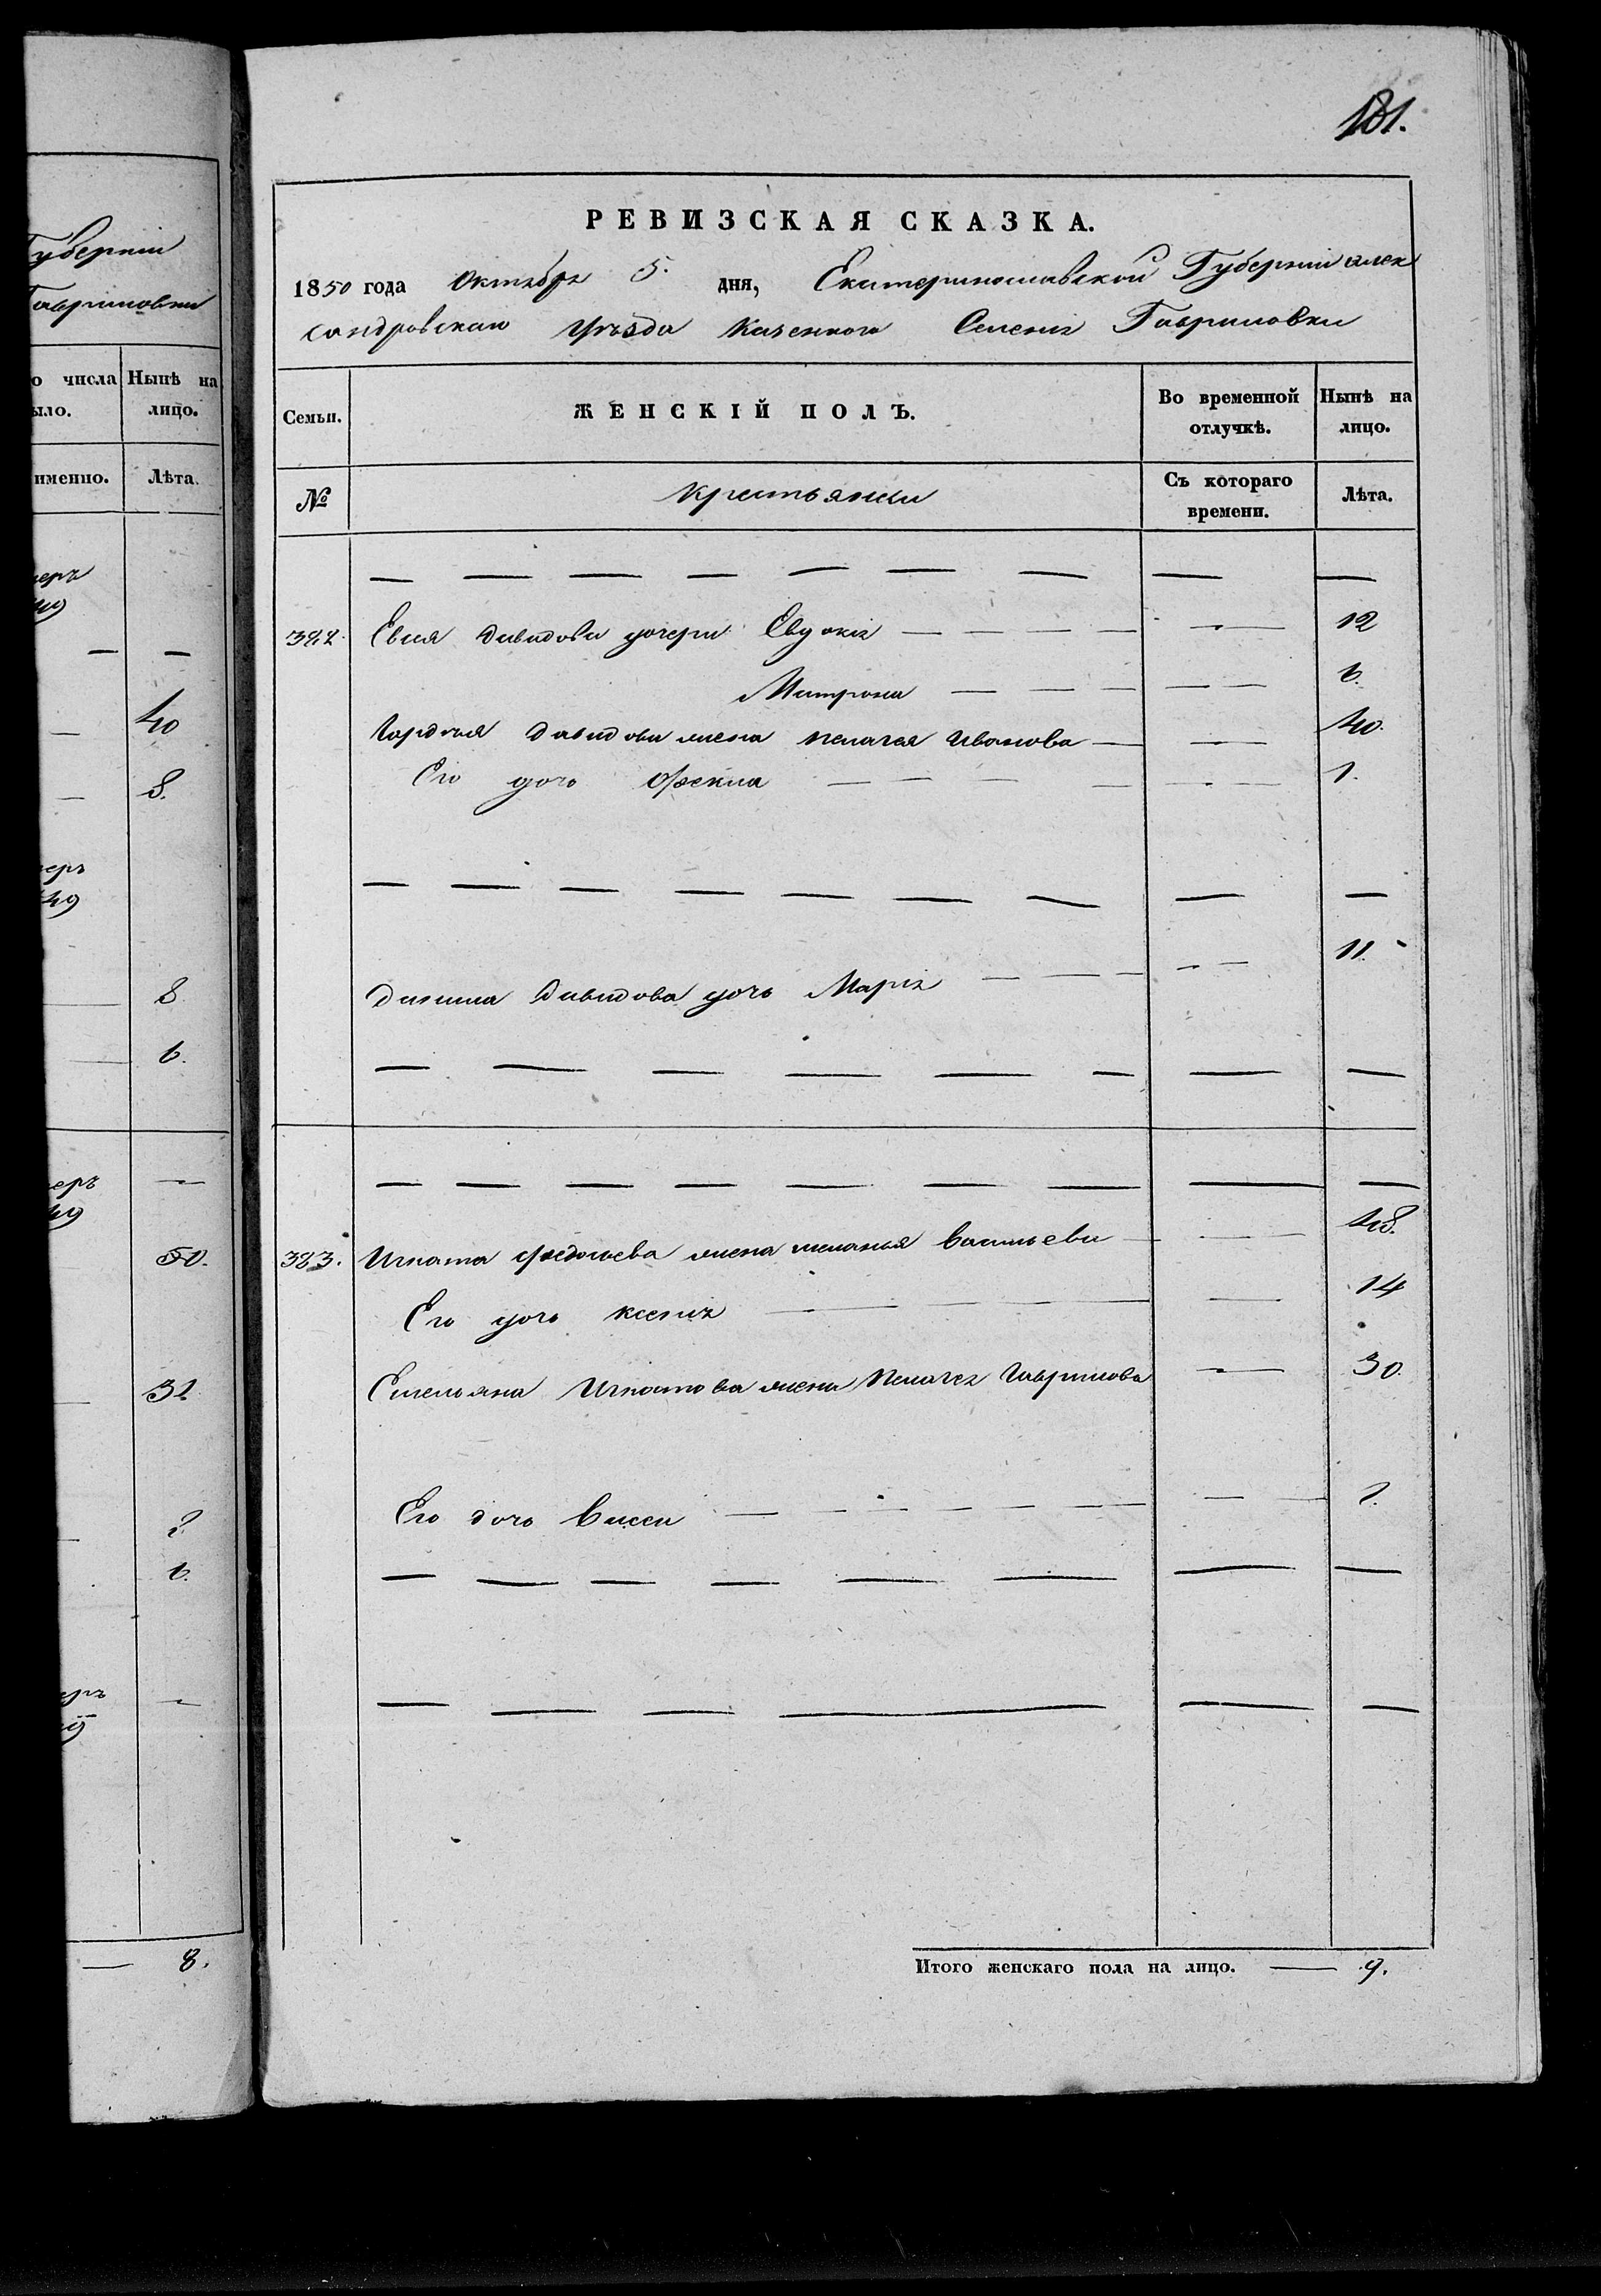 181.
Губерніи
Гавриловки
о числа
ыло.
Нынѣ на
лицо.
именно.
Лѣта.
—
40
8.
49
8
6.
—
50.
32
2
6.
—
— 8.
РЕВИЗСКАЯ СКАЗКА.
1850 года Октября 5. дня, Екатеринославской Губерніи Алек
сандровскаго Уѣзда Казеннаго Селенія Гавриловки
Семьи.
ЖЕНСКІЙ ПОЛЪ.
Во временной отлучкѣ.
Нынѣ на лицо.
№
Крестьянки
Съ котораго времени.
Лѣта.
— — — — — — — — —
382. Евсея Давидова дочери Евдокія — — — — — 12
Матрона — — — — — 6.
Гордѣя Давидова жена Пелагея Иванова — — 40.
Его дочь Фекла — — — — — 1.
— — — — — — — — —
Данила Давидова дочь Марія — — — — — 11.
— — — — — — — —
— — — — — — — — —
383. Игната Федосѣева жена Меланья Васильева — — 48.
Его дочь Ксенія — — — — — 14
Емельяна Игнатова жена Пелагея Гаврилова — 30.
Его дочь Васса — — — — — — — 1.
— — — — — — — —
— — — — — —
Итого женскаго пола на лицо. — 9.